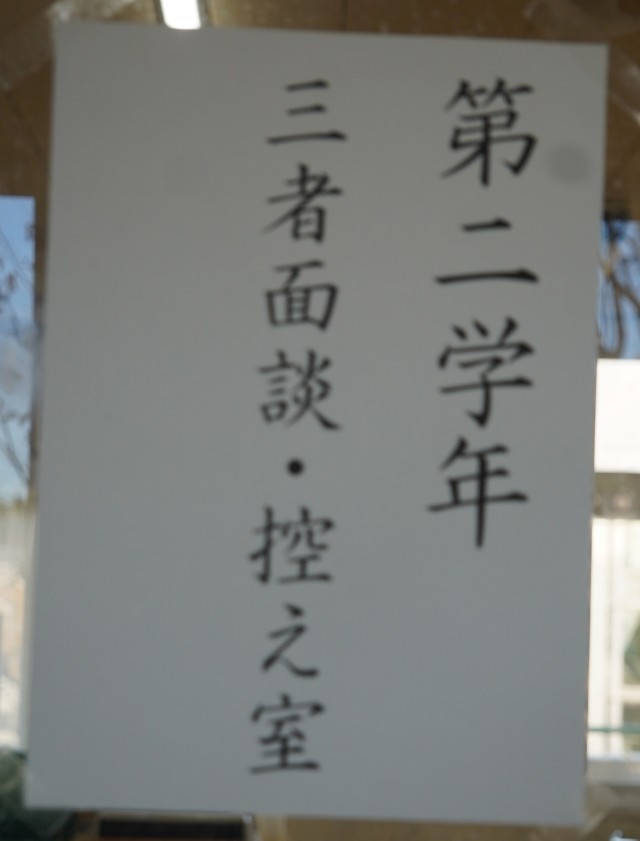 第二学年
三者面談・控え室